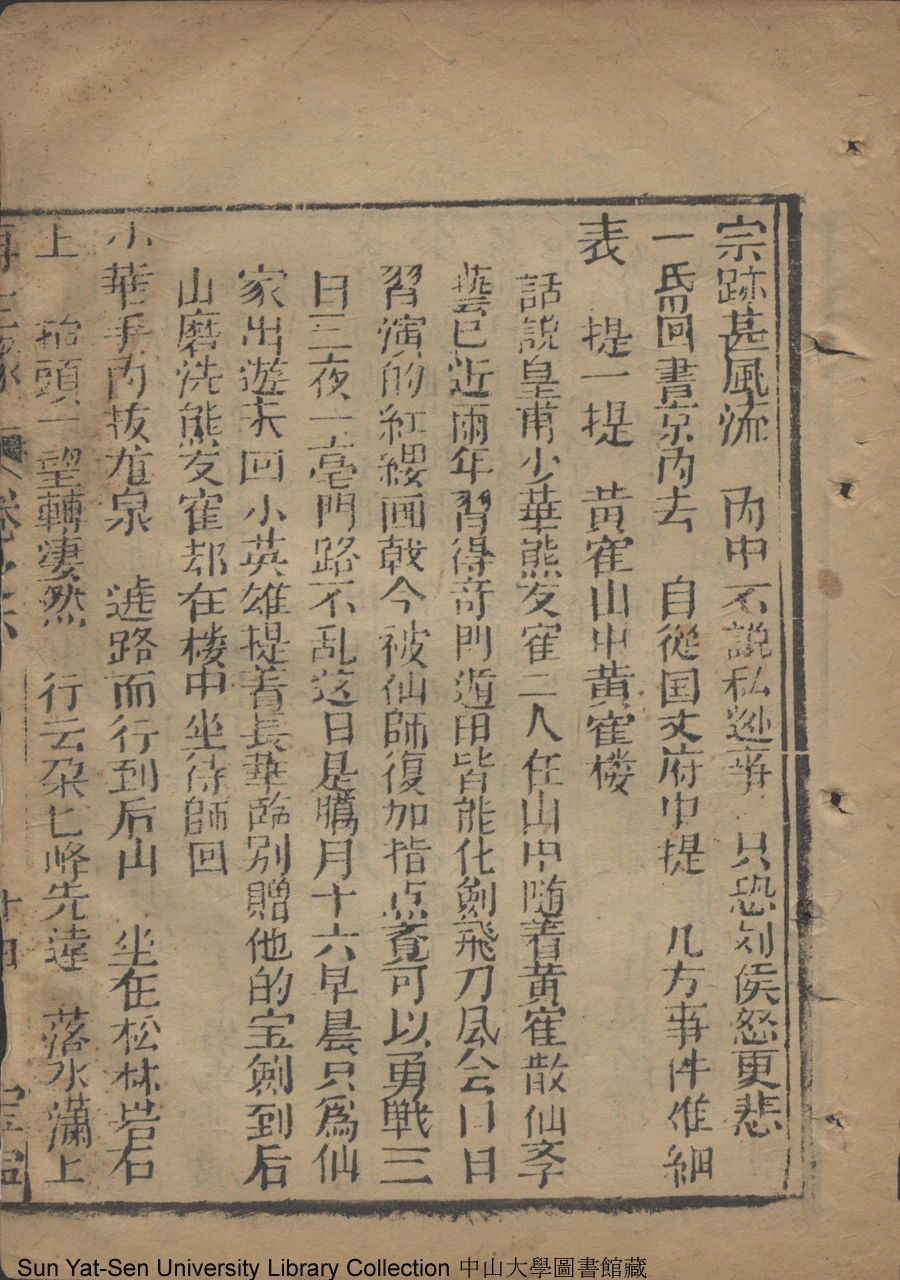 宗跡甚風流 內中不說私逃事 只恐刘侯怒更悲
一昏回書京內去 自從国丈府中提 几方事件难細
表 提一提 黄寉山中黄寉楼
話說皇甫少華熊友寉二人在山中随着黄寉散仙孝
藝已近兩年習得奇門遁田皆能化劍飛刀风会日日
習演的紅纓画戟今被仙師復加指点竟可以勇戰三
日三夜一毫門路不乱这日是臈月十六早晨只爲仙
家出遊未回小英雄提着長華臨別贈他的宝劍到后
山磨洗熊友寉却在楼中坐待師回
小華手內拔龍泉 遶路而行到后山 坐在松林岩石
上 抬頭一望轉凄然 行云朵匕峰先遠 落水瀟上
再生缘 卷之六 十四 宝寧
Sun Yat-Sen University Library Collection 中山大學圖書館藏